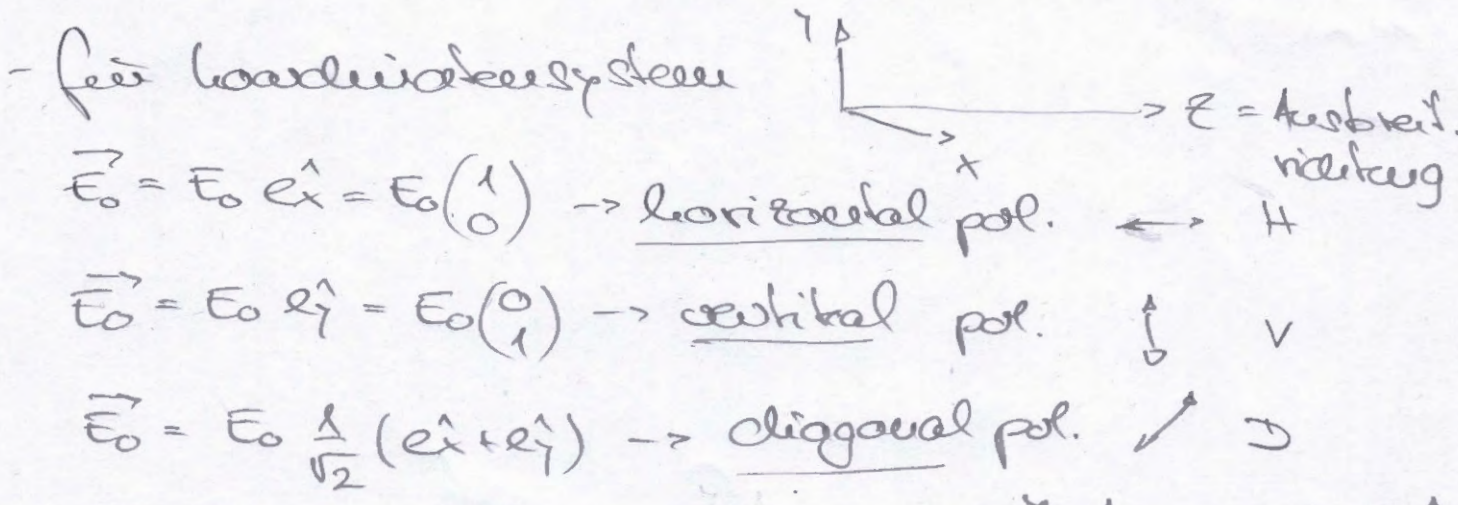 - für Koordinatensystem y x z = Ausbreit.
richtung
E₀⃗ = E₀ êx = E₀(1 0) -> horizontal pol. ↔ H
E₀⃗ = E₀ êy = E₀(0 1) -> vertikal pol. ↕ V
E₀⃗ = E₀ 1/√2 (êx + êy) -> diagonal pol. ⤢ D